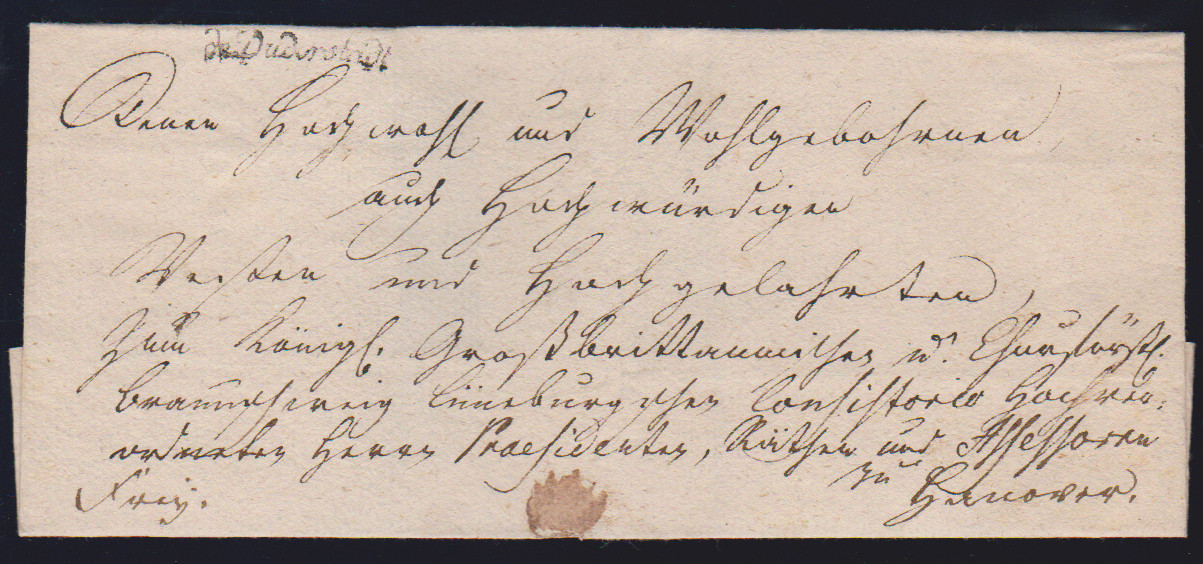 de Duderstadt
Denen Hochwohl und Wohlgebohrnen,
auch Hochwürdigen
Vesten und Hochgelahrten,
Zum Königl. Großbrittannischen u. Churfürstl.
Braunschweig Lüneburgschen Consistorio Hochver-
ordneten Herrn Praesidenten, Räthen und Assessoren
zu
Frey. Hanover.